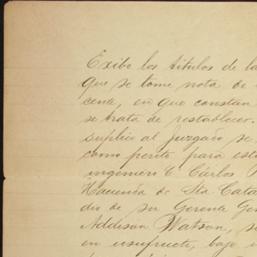 Exibo los títulos de la
que se tome nota de
cena, en que constan
se trata de restablecer.
suplico al juzgado se
como perito para est
ingeniero C. Cárlos
Hacienda de Sta. Cata
dio de su Gerente Gen
Addison Watson, s
en usufructo, bajo